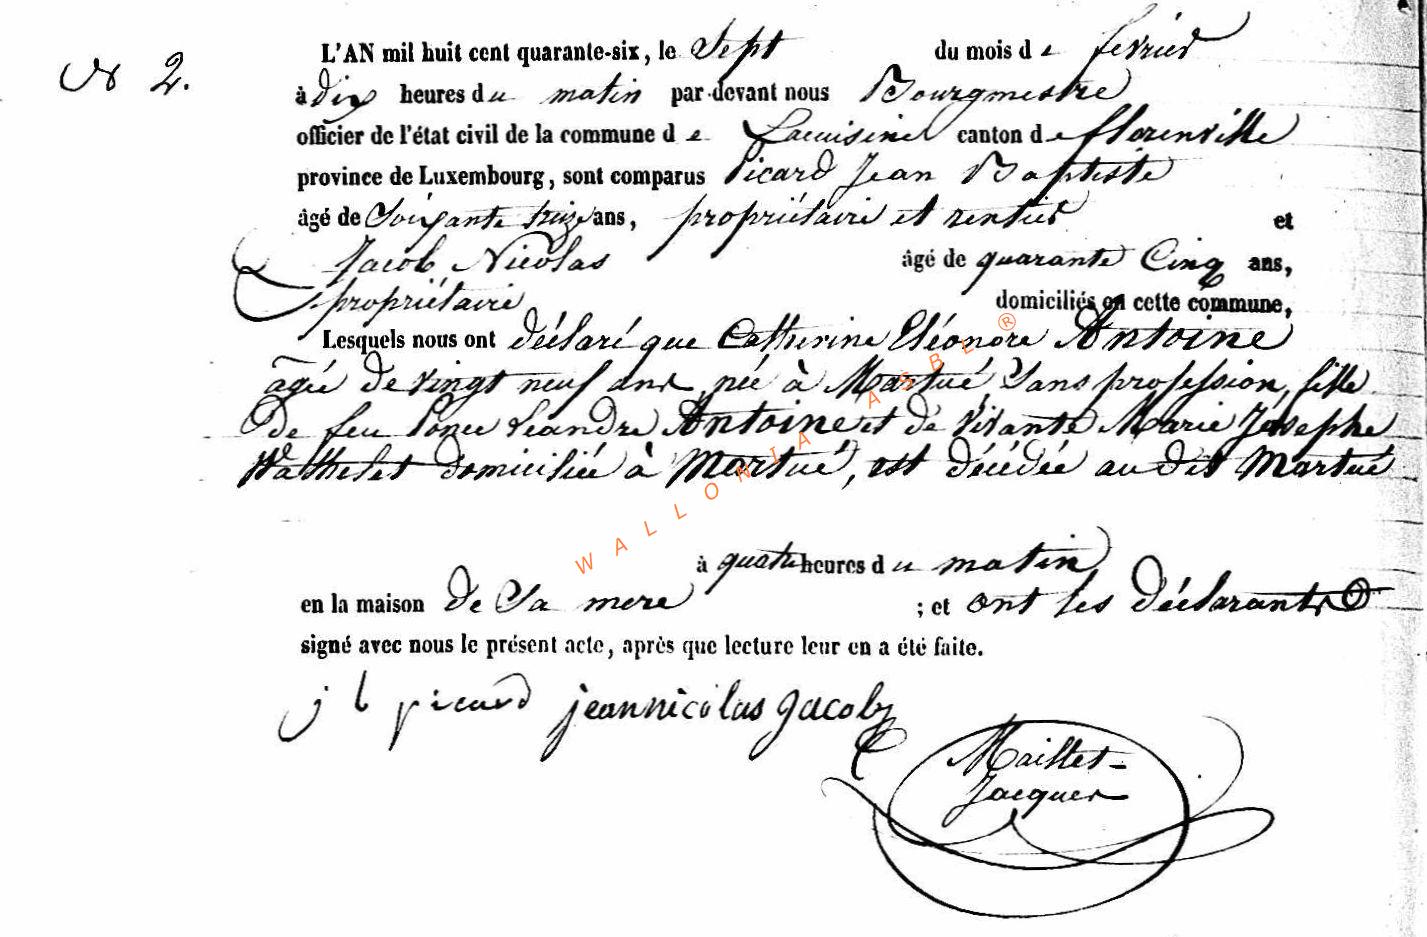 N 2.
L'AN mil huit cent quarante-six, le Sept du mois de février
à dix heures du matin par-devant nous Bourgmestre
officier de l'état civil de la commune de Lacuisine canton de florenville
province de Luxembourg, sont comparus Picard Jean Baptiste
âgé de Soixante seize ans, propriétaire et rentier et
Jacob Nicolas âgé de quarante Cinq ans,
propriétaire domiciliés en cette commune,
Lesquels nous ont déclaré que Catherine Eléonore Antoine
agée de vingt neuf ans née à Martué Sans profession, fille
de feu Ponce Leandre Antoine et de vivante Marie Josephe
Wathelet domiciliée à Martué, est décédée au dit Martué
à quatre heures du matin
en la maison de Sa mere ; et ont les déclarants
signé avec nous le présent acte, après que lecture leur en a été faite.
j b picard jeannicolas Jacob
Maillet-
Jacques
WALLONIA ASBL ®